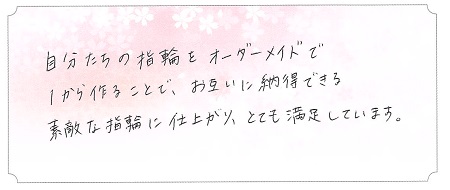 自分たちの指輪をオーダーメイドで
1から作ることで、お互いに納得できる
素敵な指輪に仕上がり、とても満足しています。